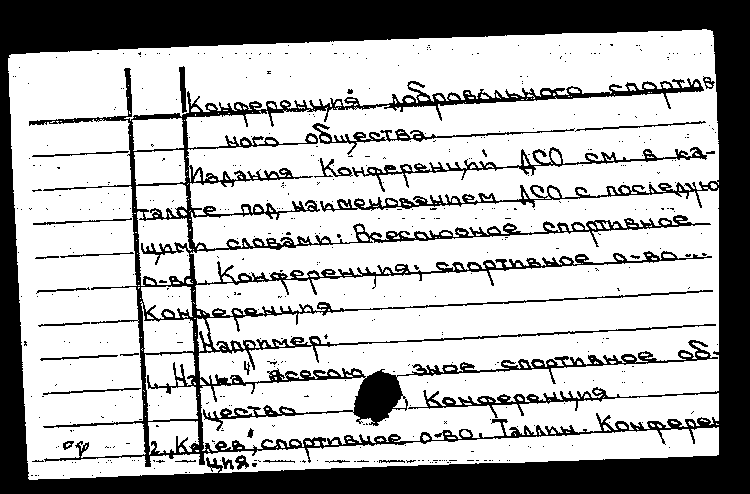 Конференция добровольного спортив-
ного общества.
Издания Конференций ДСО см. в ка-
талоге под наименованием ДСО с последую-
щими словами: Всесоюзное спортивное
о-во. Конференция; спортивное о-во...
Конференция.
Например:
1. „Наука", всесоюзное спортивное об-
щество. Конференция.
2. „Калев", спортивное о-во. Таллин. Конферен-
ция.